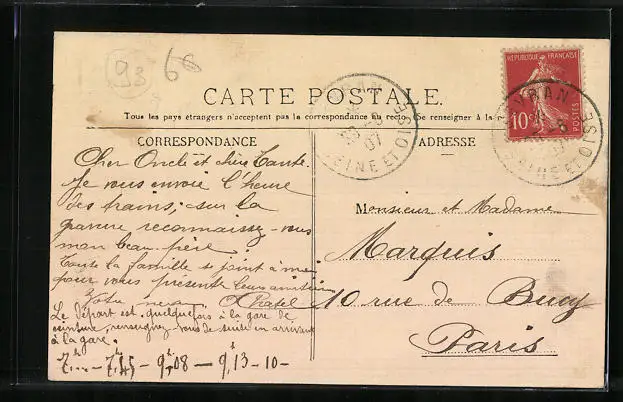 93 66
CARTE POSTALE
Tous les pays étrangers n'acceptent pas la correspondance au recto (Se renseigner à la
CORRESPONDANCE
ADRESSE
RÉPUBLIQUE FRANÇAISE
10c
POSTES
VRAN
07
SEINE ET OISE
VRAN
SEINE ET OISE
Cher Oncle et chère Tante.
Je vous envoie l'heure
des trains; sur la
gravure reconnaissez-vous
mon beau-père.
Toute la famille se joint à moi
pour vous présente leurs amitiés
Votre neveu
Le départ est quelquefois à la gare de
ceinture, renseignez-vous de suite en arrivant
à la gare.
7h... — 7h45 — 9h,08 — 9h,13 — 10 —
Monsieur et Madame
Marquis
10 rue de Bucy
Paris